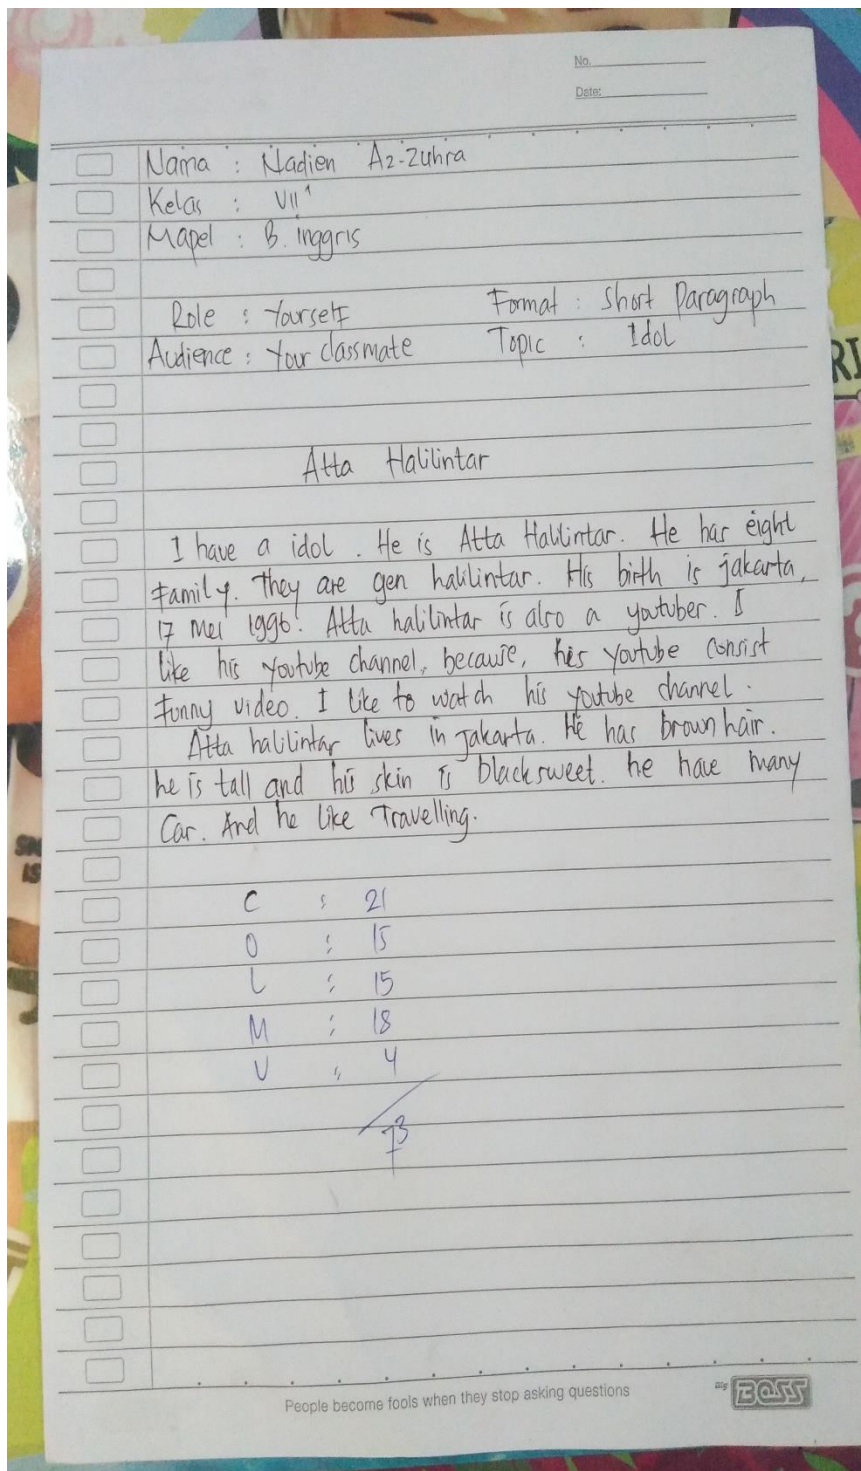 No.
Date:
Nama : Nadien Az-Zuhra
Kelas : VII 1
Mapel : B. inggris
Role : Yourself Format : Short Paragraph
Audience : Your classmate Topic : Idol
Atta Halilintar
I have a idol. He is Atta Halilintar. He has eight
family. They are gen halilintar. His birth is jakarta,
17 Mei 1996. Atta halilintar is also a youtuber. I
like his youtube channel, because, his youtube consist
funny video. I like to watch his youtube channel.
Atta halilintar lives in jakarta. He has brown hair.
he is tall and his skin is black sweet. he have many
Car. And he like Travelling.
C : 21
O : 15
L : 15
M : 18
V : 4
73
People become fools when they stop asking questions
Big BOSS